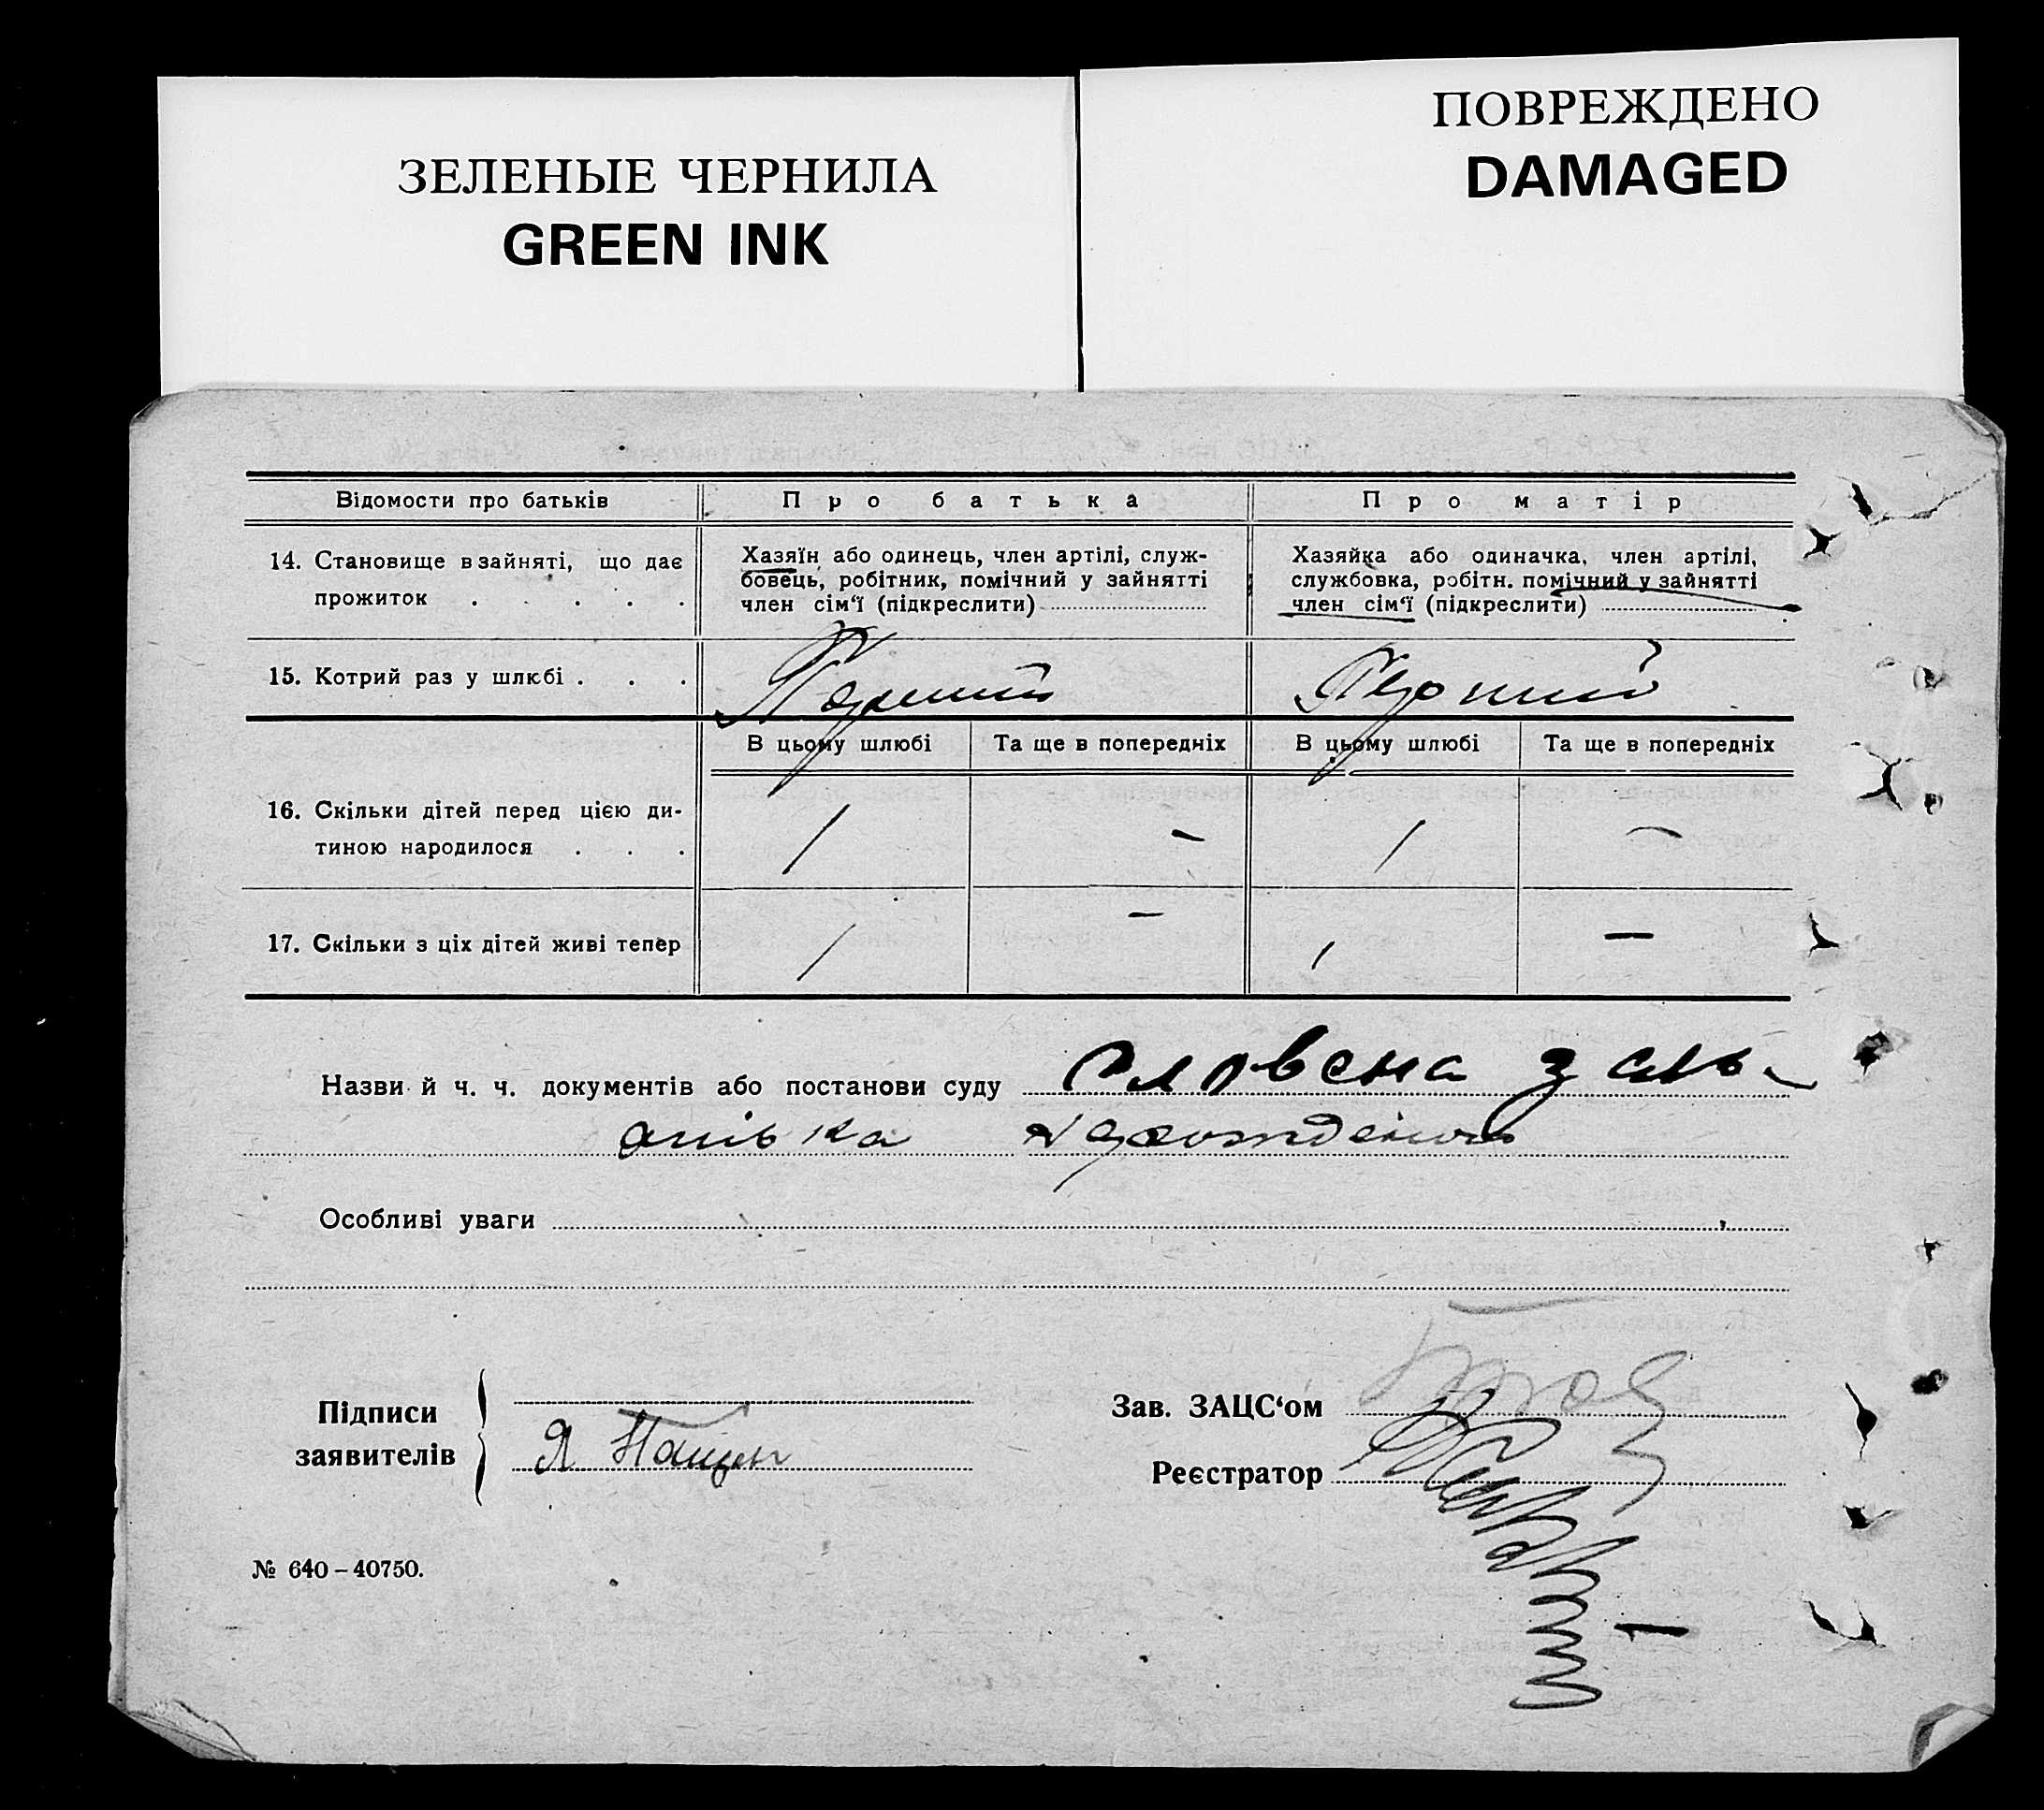 ЗЕЛЕНЫЕ ЧЕРНИЛА
GREEN INK
ПОВРЕЖДЕНО
DAMAGED
Відомости про батьків
Про батька
Про матір
14. Становище в зайняті, що дає
прожиток . . . . .
Хазяїн або одинець, член артілі, служ-
бовець, робітник, помічний у зайнятті
член сім‘ї (підкреслити)
Хазяйка або одиначка, член артілі,
службовка, робітн. помічний у зайнятті
член сім‘ї (підкреслити)
15. Котрий раз у шлюбі . . .
Перший
Перший
В цьому шлюбі
Та ще в попередніх
В цьому шлюбі
Та ще в попередніх
16. Скільки дітей перед цією ди-
тиною народилося . . .
1 – 1 –
17. Скільки з ціх дітей живі тепер
1 – 1 –
Назви й ч. ч. документів або постанови суду словесна заяв-
Особливі уваги
Підписи
заявителів
Я
Зав. ЗАЦС‘ом
Реєстратор
№ 640–40750.